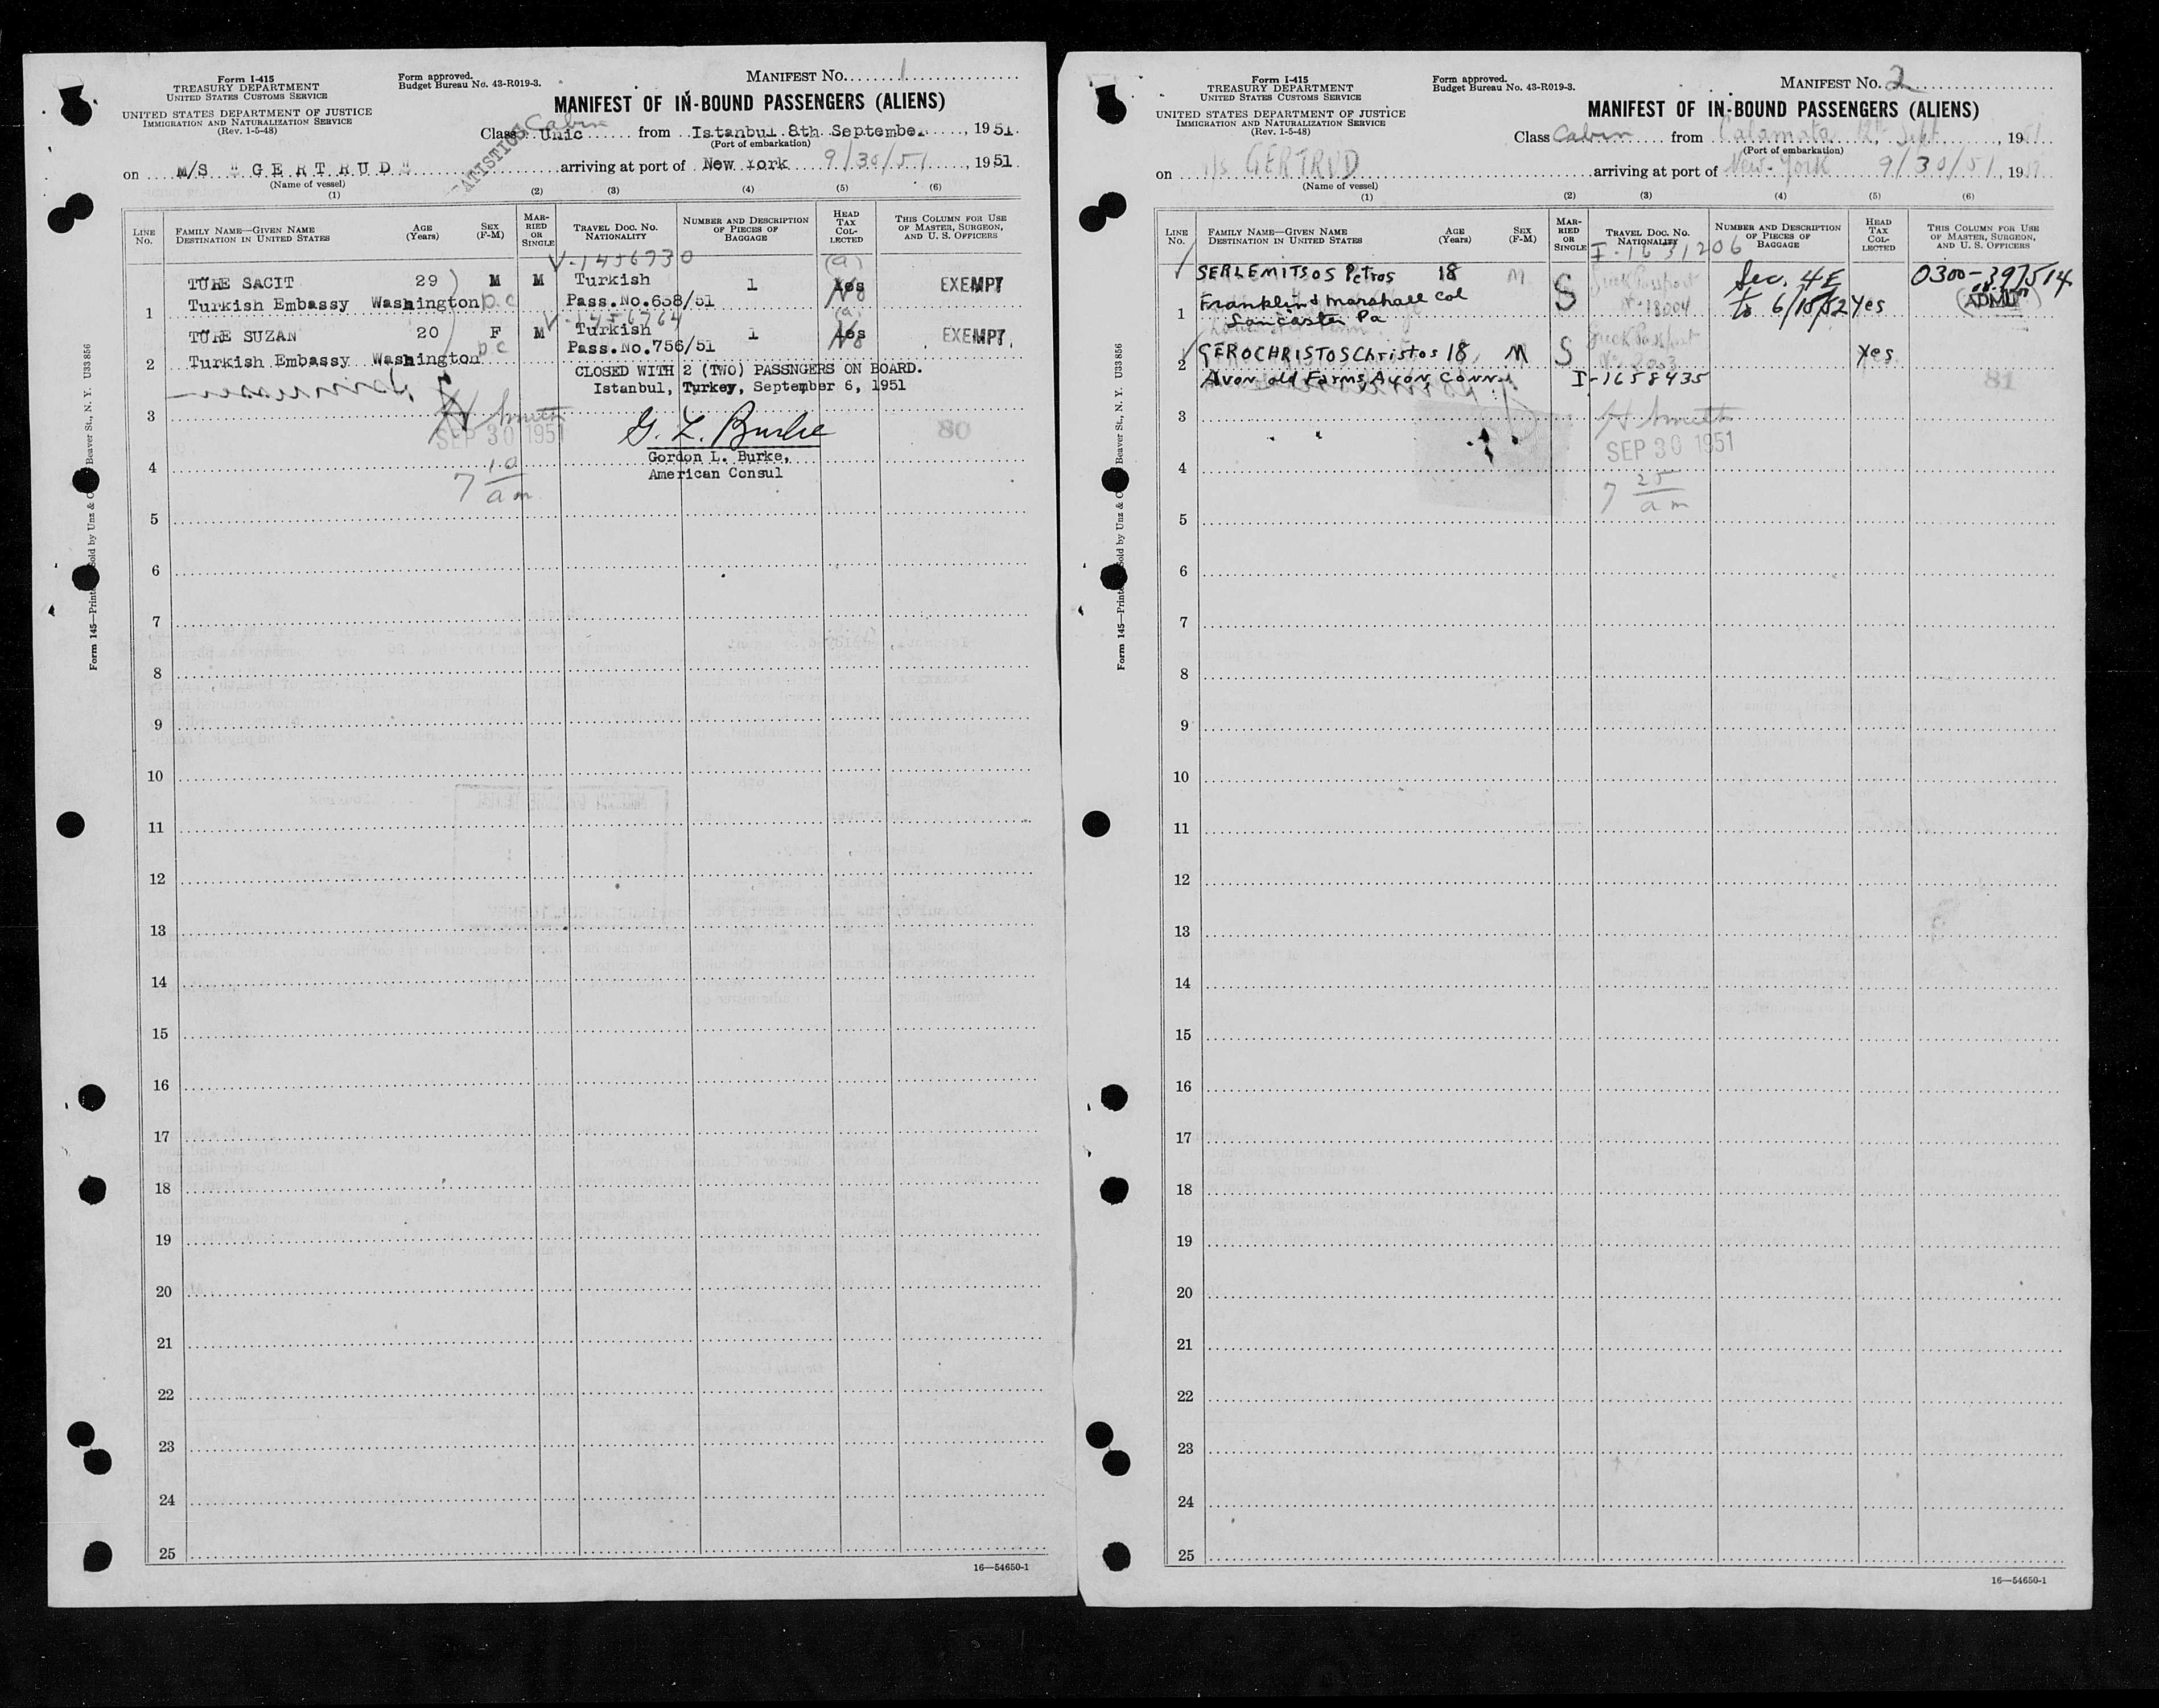 Form I-415
TREASURY DEPARTMENT
UNITED STATES CUSTOMS SERVICE
UNITED STATES DEPARTMENT OF JUSTICE
IMMIGRATION AND NATURALIZATION SERVICE
(Rev. 1-5-48)
Form approved.
Budget Bureau No. 43-R019-3.
MANIFEST No. 1
MANIFEST OF IN-BOUND PASSENGERS (ALIENS)
Cabin
Class Unic from Istanbul 8th September, 1951
(Port of embarkation)
on M/S "GERTRUD" arriving at port of New York 9/30/51, 1951
(Name of vessel)
(1) (2) (3) (4) (5) (6)
LINE No.
FAMILY NAME—GIVEN NAME
DESTINATION IN UNITED STATES
AGE (Years)
SEX (F-M)
MARRIED OR SINGLE
TRAVEL DOC. NO. NATIONALITY
NUMBER AND DESCRIPTION OF PIECES OF BAGGAGE
HEAD TAX COLLECTED
THIS COLUMN FOR USE OF MASTER, SURGEON, AND U. S. OFFICERS
V-1456730 (a)
TÜRE SACIT 29 M M Turkish 1 Yes EXEMPT
1 Turkish Embassy Washington p.c Pass.No.658/51 No
V-1456764 (a)
TÜRE SUZAN 20 F M Turkish 1 Yes EXEMPT.
2 Turkish Embassy Washington p c Pass.No.756/51 No
CLOSED WITH 2 (TWO) PASSNGERS ON BOARD.
Istanbul, Turkey, September 6, 1951
3
SEP 30 1951
G. L. Burke
80
Gordon L. Burke,
American Consul
4
7 10 am
5
6
7
8
9
10
11
12
13
14
15
16
17
18
19
20
21
22
23
24
25
16—54650-1
Form I-415
TREASURY DEPARTMENT
UNITED STATES CUSTOMS SERVICE
UNITED STATES DEPARTMENT OF JUSTICE
IMMIGRATION AND NATURALIZATION SERVICE
(Rev. 1-5-48)
Form approved.
Budget Bureau No. 43-R019-3.
MANIFEST No. 2
MANIFEST OF IN-BOUND PASSENGERS (ALIENS)
Class Cabin from Calamata 12th Sept., 1951
(Port of embarkation)
on M/s GERTRUD arriving at port of New-York 9/30/51, 19
(Name of vessel)
(1) (2) (3) (4) (5) (6)
LINE No.
FAMILY NAME—GIVEN NAME
DESTINATION IN UNITED STATES
AGE (Years)
SEX (F-M)
MARRIED OR SINGLE
TRAVEL DOC. NO. NATIONALITY
NUMBER AND DESCRIPTION OF PIECES OF BAGGAGE
HEAD TAX COLLECTED
THIS COLUMN FOR USE OF MASTER, SURGEON, AND U. S. OFFICERS
I-1631206
SERLEMITSOS Petros 18 M S Greek Passport Sec. 4E 0300-397514
1 Franklin & Marshall Col No 18004 To 6/15/52 Yes (ADMIT)
Lancaster Pa
2 GEROCHRISTOS Christos 18 M S Greek Passport Yes
Avon old Farms, Avon, Conn. I-1658435
81
3
SEP 30 1951
4
7 25 am
5
6
7
8
9
10
11
12
13
14
15
16
17
18
19
20
21
22
23
24
25
16—54650-1